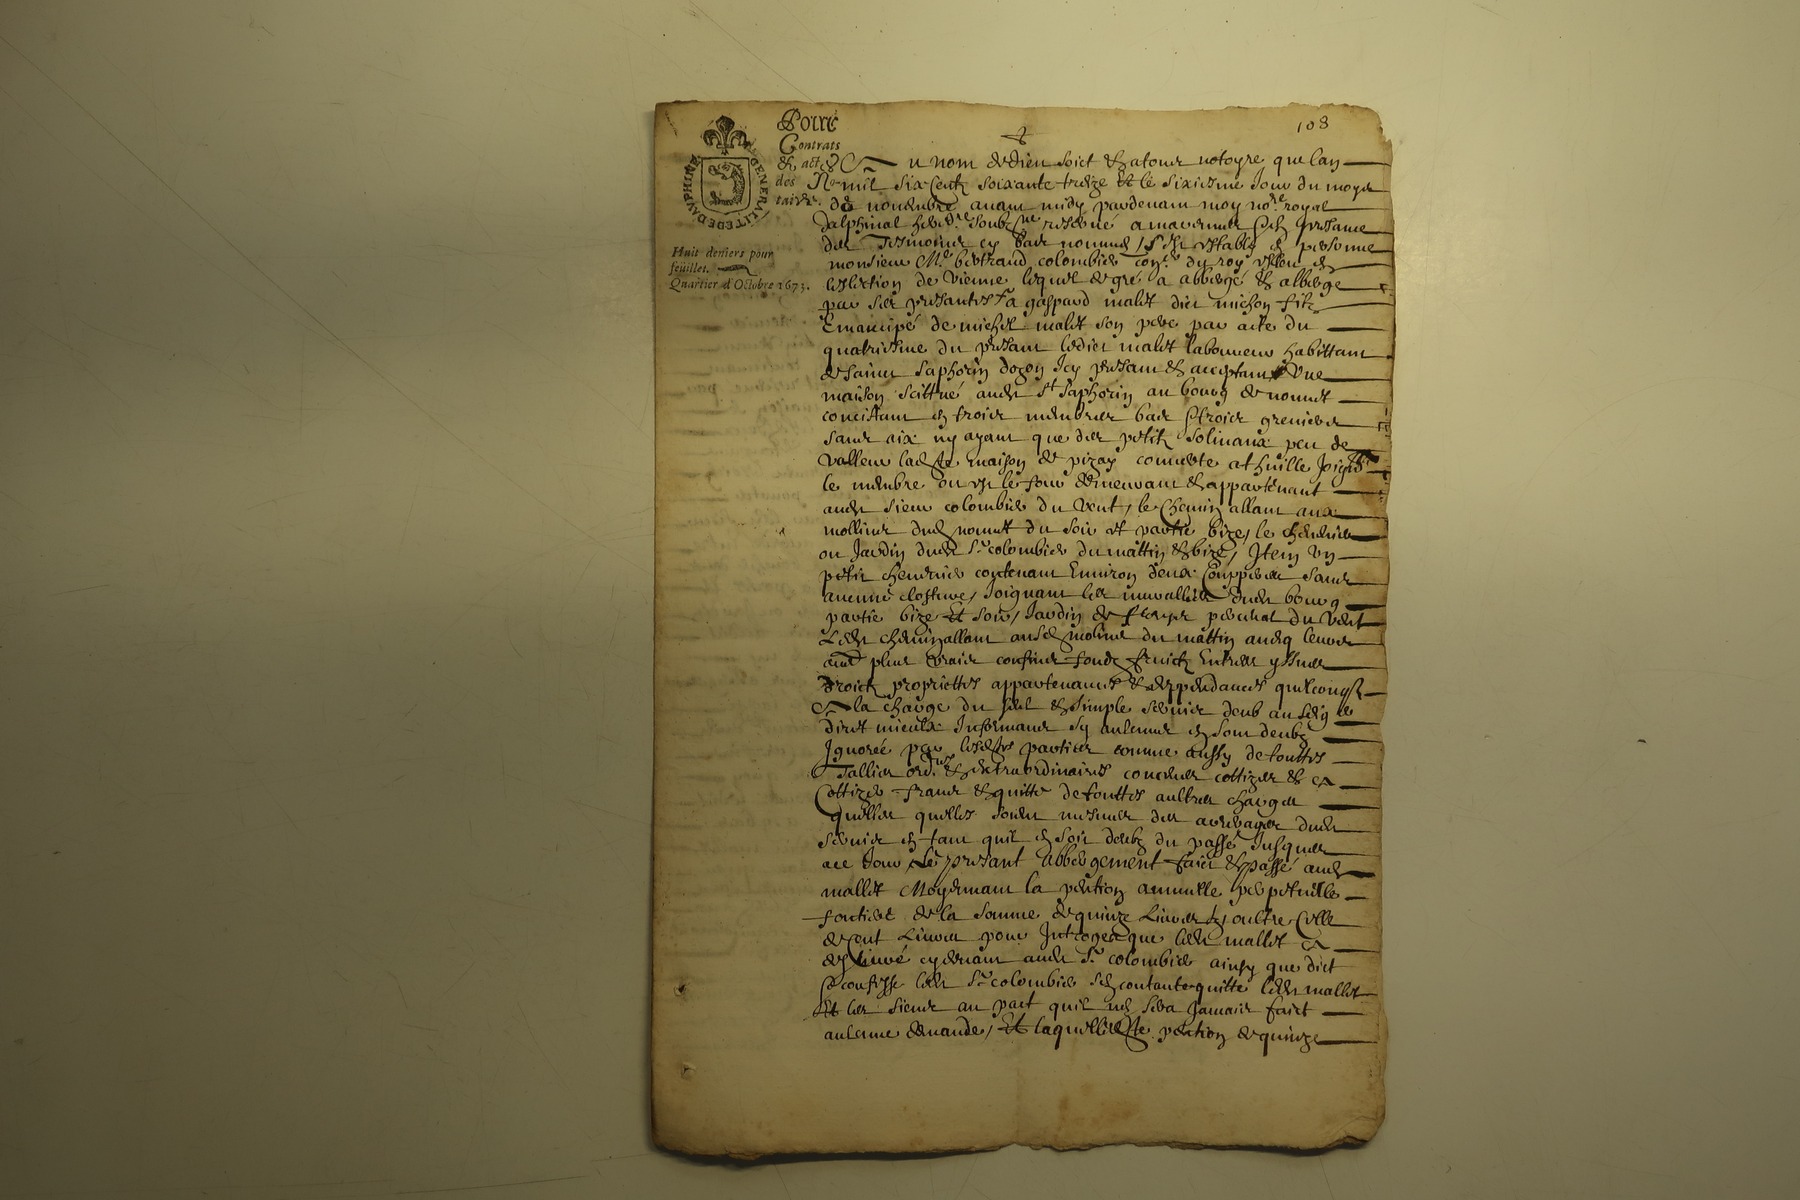 108
Pour
Contrats
& actes
des No-
taires.
GENERALITE DE DAUPHINE
Huit deniers pour
feuillet.
Quartier d'Octobre 1673.
Au nom de dieu soict & atous notoyre que lan
mil six centz soixante treize et le sixiesme jour du moys
de novembre avant midy pardevant moy no.re royal
dalphinal hered.re soubz.né reservé a marennes & presance
des tesmoins cy bas nommes, s'est establi en personne
monsieur M.e bertrand colombier con.er du roy esleu en
leslection de vienne lequel de gré a abbergé & alberge
par ses presantes a gaspard malet dict michon filz
Emancipé de michel malet son pere par acte du
quatriesme du presant ledict malet laboureur habittant
de sainct saphorin dozon icy presant & acceptant une
maison scittué aud st saphorin au bourg de nouuet
concistant en troies membres bas & troies greniers
sans aix ny ayant que des petitz solivaux peu de
valleur lad.te maison de pizay couverte a thuille joignt
le membre ou est le four & appartenant
aud sieur colombier du vent, le chemin allant aux
mollins dud nouuet du soir et partie bize, le chenevier
ou Jardin dud s.r colombier du mattin & bize, Item un
petit chenevier contenant Environ deux Couppées sans
aucune closture, Joignant les muralies dud bourg
partie bize Et soir, Jardin de du vent
Led chemin allant ausd molins du mattin avecq leurs
aut.s plus vraies confins fondz fruictz Entrées yssues
droictz propriettes appartenances & deppendances quelconqs
A la charge du cens & simple servis deub au seig.r
direct mieulx Informance sy aulcuns en sont deubz
Ignorée par lesd.tes parties comme aussy de touttes
Tallies ord.res & extraordinaires concernes cottizees & a
Cottizer franc & quitte de touttes aultres charges
quelles quelles soient mesmes des arrerages dud
servis en tant quil en soit deubz du passé Jusques
ace jour Le presant abbergement faict & passé aud
mallet Moyenant la pention annuelle perpetuelle
fonciere de la somme de quinze Livres & oultre Celle
de cent Livres pour Introges que led mallet a
delivré cydevant aud s.r colombier ainsy que dict
& confesse led s.r colombier sen contante quitte led mallet
Et les siens au pact quil nen sera Jamais faict
aulcune demande, Et laquelle d.te pention de quinze